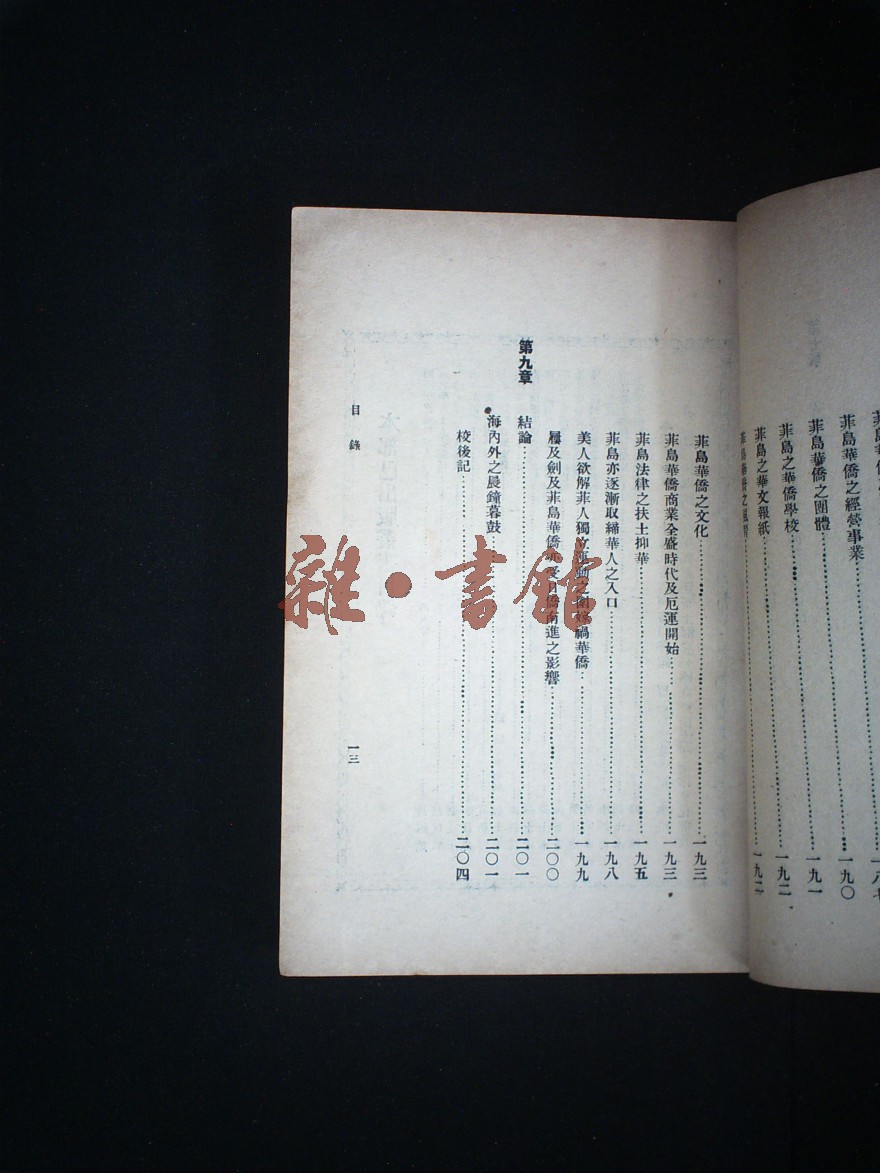 菲島華僑之經營事業……一九〇
菲島華僑之團體……一九一
菲島之華僑學校……一九二
菲島之華文報紙……一九二
菲島華僑之文化……一九三
菲島華僑商業全盛時代及厄運開始……一九三
菲島法律之扶土抑華……一九五
菲島亦逐漸取締華人之入口……一九八
美人欲解菲人獨立運動之圍嫁禍華僑……一九九
屬及劍及菲島華僑亦受日僑南進之影響……二〇〇
第九章 結論……二〇一
海內外之晨鐘暮鼓……二〇一
校後記……二〇四
目錄
一三
雜·書館